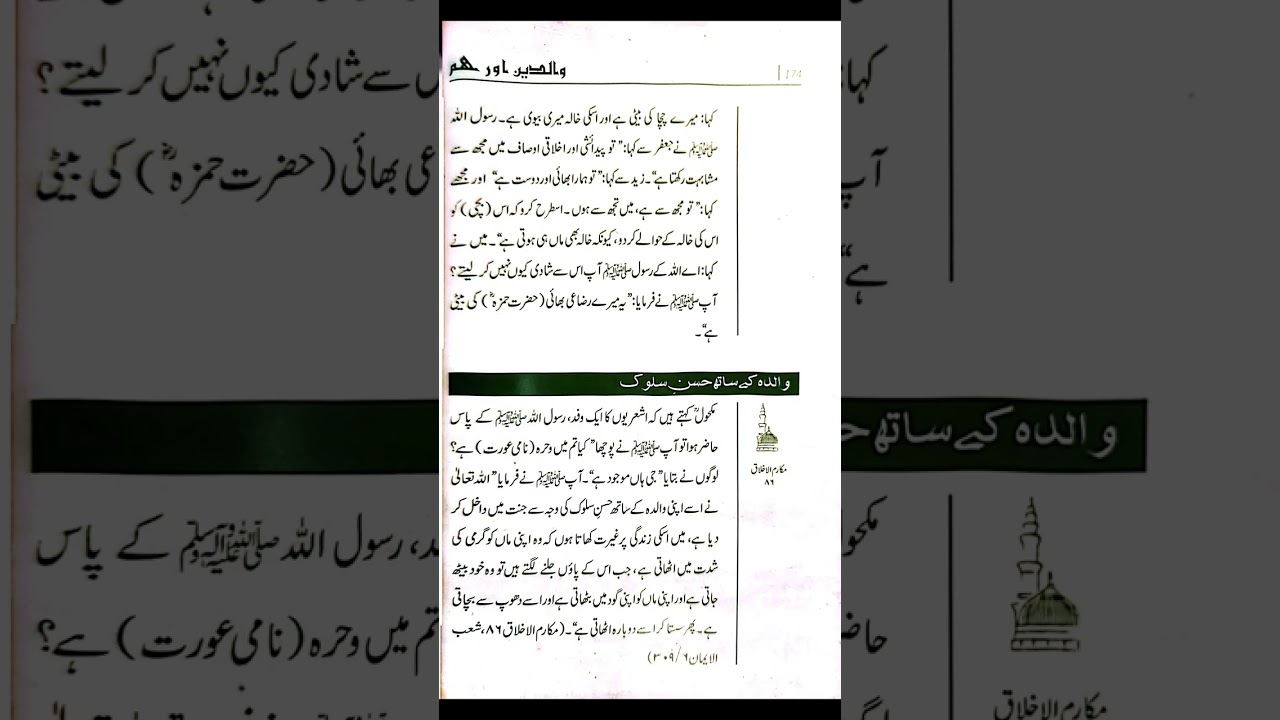 والدین اور ہم
174
کہا: میرے چچا کی بیٹی ہے اور اسکی خالہ میری بیوی ہے۔ رسول اللہ
ﷺ نے جعفر سے کہا: ”تو پیدائشی اور اخلاقی اوصاف میں مجھ سے
مشابہت رکھتا ہے“۔ زید سے کہا: ”تو ہمارا بھائی اور دوست ہے“ اور مجھے
کہا: ”تو مجھ سے ہے، میں تجھ سے ہوں۔ اسطرح کرو کہ اس (بچی) کو
اس کی خالہ کے حوالے کردو، کیونکہ خالہ بھی ماں ہی ہوتی ہے“۔ میں نے
کہا: اے اللہ کے رسول ﷺ آپ اس سے شادی کیوں نہیں کر لیتے؟
آپ ﷺ نے فرمایا: ”یہ میرے رضاعی بھائی (حضرت حمزہؓ) کی بیٹی
ہے“۔
والدہ کے ساتھ حسنِ سلوک
مکحولؒ کہتے ہیں کہ اشعریوں کا ایک وفد، رسول اللہ ﷺ کے پاس
حاضر ہوا تو آپ ﷺ نے پوچھا ”کیا تم میں وحرہ (نامی عورت) ہے؟
لوگوں نے بتایا ”جی ہاں موجود ہے“۔ آپ ﷺ نے فرمایا ”اللہ تعالیٰ
نے اسے اپنی والدہ کے ساتھ حسنِ سلوک کی وجہ سے جنت میں داخل کر
دیا ہے، میں اسکی زندگی پر غیرت کھاتا ہوں کہ وہ اپنی ماں کو گرمی کی
شدت میں اٹھاتی ہے، جب اس کے پاؤں جلنے لگتے ہیں تو وہ خود بیٹھ
جاتی ہے اور اپنی ماں کو اپنی گود میں بٹھاتی ہے اور اسے دھوپ سے بچاتی
ہے۔ پھر سستا کر اسے دوبارہ اٹھاتی ہے“۔ (مکارم الاخلاق ۸۶، شعب
الایمان ۶/ ۳۰۹)
مکارم الاخلاق
۸۶